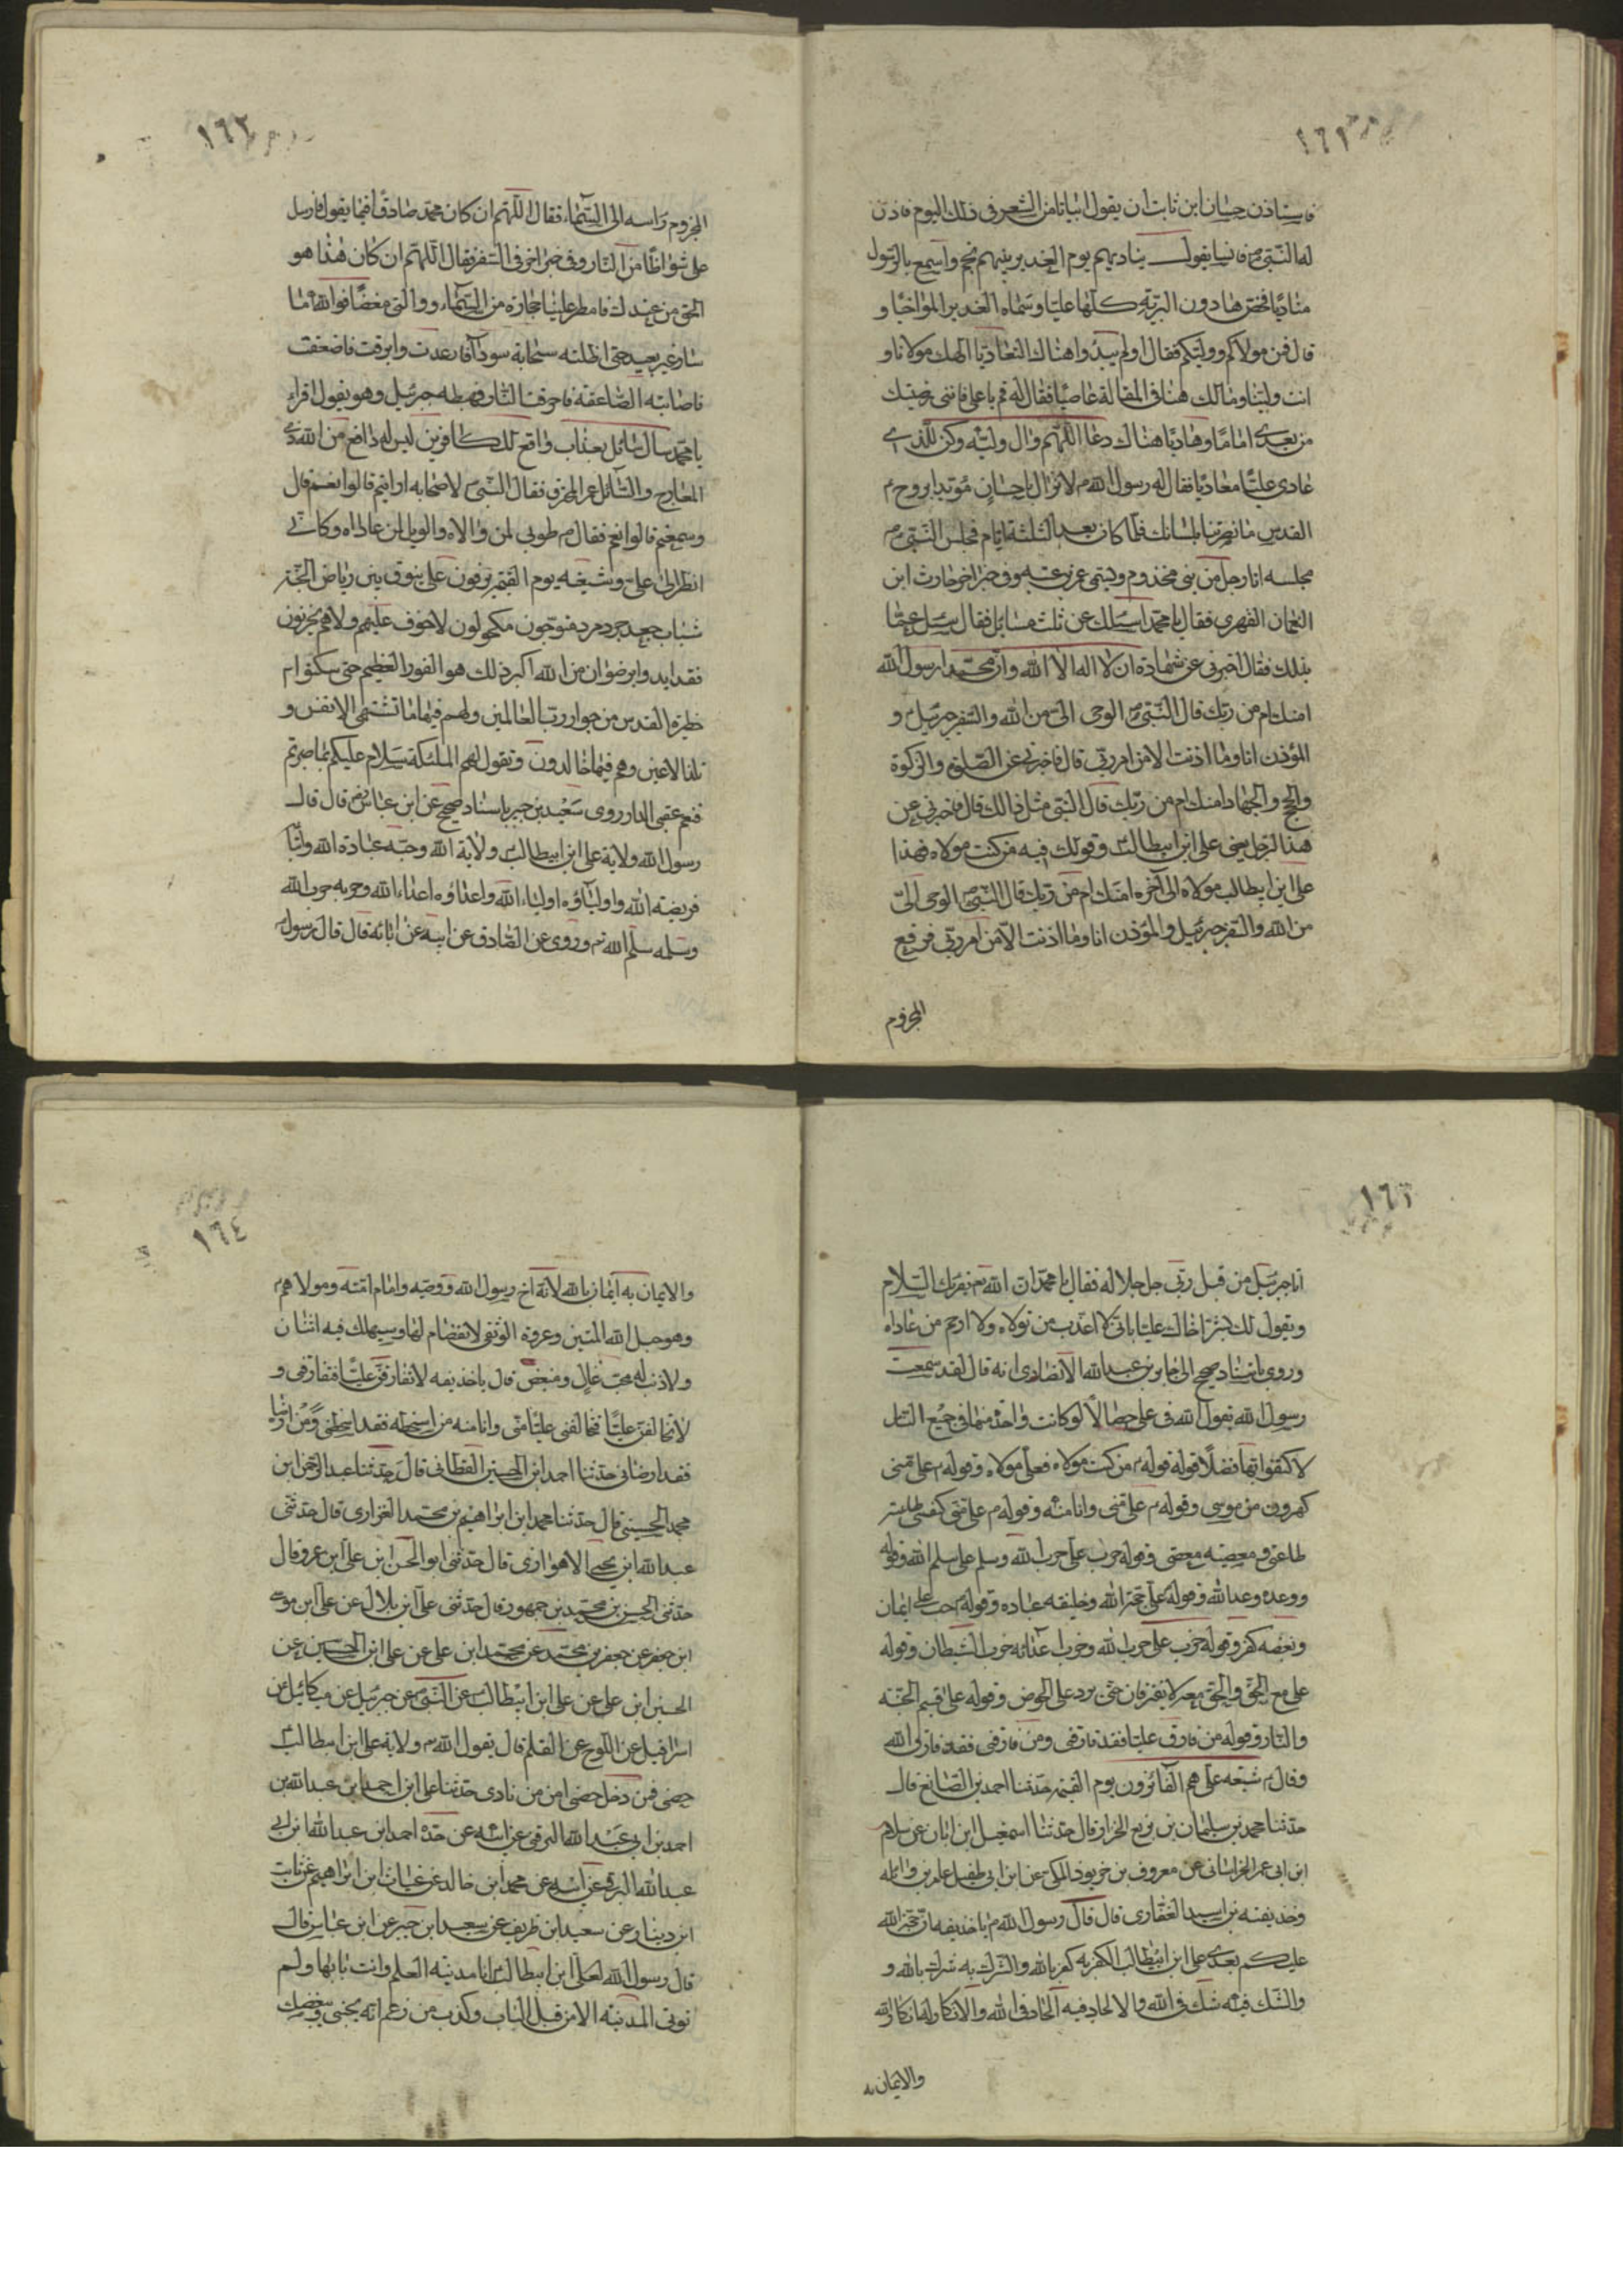 ١٦١
فاستاذن حسان ابن ثابت ان يقول ابياتا من الشعر فى ذلك اليوم فاذن
له النبىّ ص فانسا يقول يناديهم يوم الغدير نبيهم بخم واسمع بالرسول
مناديا فخص بها دون البريّة كلّها عليّا وسمّاه الغدير المواخيا و
قال فمن مولاكم ووليّكم فقال اولم يبدوا هناك التعاديا الهك مولانا و
انت وليّنا ومالك منا فى المقالة عاصيا فقال له قم يا على فاننى رضيتك
من بعدى اماما وهاديا هناك دعا اللّهم وال وليّه وكن للّذى
عادى عليّا معاديا فقال له رسول الله ص لا تزال يا حسان مؤيدا بروح
القدس ما نصرتنا بلسانك فلما كان بعد الثلثة ايام فجلس النّبىّ ص
مجلسه اتا رجل من بنى مخذوم ويسمى عمر بن عتبه وفى خبر اخر حارث ابن
النعمان الفهرى فقال يا محمد اسئلك عن ثلث مسائل فقال سئل عمّا
بدلك فقال اخبرنى عن شهادة ان لا اله الا الله وانّ محمّدا رسول الله
امنك ام من ربّك قال النّبىّ ص الوحى الىّ من الله والسّفير جبرئيل و
المؤذن انا وما اذنت الا من امر ربّى قال فاخبرنى عن الصّلوة والزكوة
والحج والجهاد امنك ام من ربّك قال النبى مثل ذالك قال فاخبرنى عن
هذا الرّجل يعنى على ابن ابيطالب وقولك فيه من كنت مولاه فهذا
على ابن ابيطالب مولاه الى آخره امنك ام من ربّك قال النبىّ ص الوحى الىّ
من الله والسّفير جبرئيل والمؤذن انا وما اذنت الّا من امر ربّى فرفع
المخزوم
١٦٢
المخزوم راسه الى السّماء فقال اللّهم ان كان محمّد صادقا فيما يقول فارسل
علىّ شواظا من النّار وفى خبر اخر فى التفسير فقال اللّهم ان كان هذا هو
الحق من عندك فامطر علينا حجارة من السّماء وولّى مغضبا فو الله ما
سار غير بعيد حتى اظلته سحابة سودآء فارعدت وابرقت فاصعقت
فاصابته الصّاعقة فاحرقت النّار فهبط جبرئيل وهو يقول اقراء
يا محمّد سال سائل بعذاب واقع للكافرين ليس له دافع من الله ذى
المعارج والسّائل عمر المخزومى فقال النّبىّ لاصحابه ارايتم قالوا نعم قال
وسمعتم قالوا نعم فقال ص طوبى لمن والاه والويل لمن عاداه وكانّى
انظر الى علىّ وشيعته يوم القيمة يزفون على نوق بين رياض الجنّة
شباب جعد جرد مرد متوّجون مكحولون لا خوف عليهم ولا هم يحزنون
فقد ايدوا برضوان من الله اكبر ذلك هو الفوز العظيم حتى سكنوا
حظيرة القدس من جوار ربّ العالمين ولهم فيها ما تشتهى الانفس و
تلذ الاعين وهم فيها خالدون وتقول لهم الملئكة سلام عليكم بما صبرتم
فنعم عقبى الدار روى سعيد بن جبير باسناد صحيح عن ابن عباس قال قال
رسول الله ولاية على ابن ابيطالب ولاية الله وحبّه عبادة الله واتباعه
فريضة الله واوليآؤه اولياء الله واعداؤه اعداء الله وحربه حرب الله
وسلمه سلم الله ص وروى عن الصّادق عن ابيه عن ابائه قال قال رسول
١٦٣
انا جبرئيل من قبل ربّى جل جلاله فقال يا محمّد ان الله يقرئك السّلام
ويقول لك بشّر اخاك عليّا بانّى لا اعذّب من تولاه ولا ارحم من عاداه
وروى باسناد صحيح الى جابر بن عبد الله الانصارى انه قال لقد سمعت
رسول الله يقول فى على خصالا لو كانت واحدة منها فى جميع النّاس
لاكتفوا بها فضلا قوله من كنت مولاه فعلى مولاه وقوله ص على منّى
كهرون من موسى وقوله ص على منّى وانا منه وقوله ص على منّى كنفسى طاعته
طاعتى ومعصيته معصيتى وقوله حرب علىّ حرب الله وسلم على سلم الله وقوله
ووعده وعد الله وقوله على حجّة الله وخليفه عباده وقوله حب على ايمان
وبغضه كفر وقوله حزب علىّ حزب الله وحزب اعدائه حزب الشّيطان وقوله
على مع الحق والحق معه لا يفترقان حتى يرد على الحوض وقوله على قسيم الجنّة
والنّار وقوله من فارق عليّا فقد فارقنى ومن فارقنى فقد فارق الله
وقال ص شيعه علىّ هم الفآئزون يوم القيمة حدثنا احمد بن الصّائغ قال
حدثنا محمد بن سليمان بن بزيع الخزاز قال حدثنا اسمعيل ابن ابان عن سلام
ابن ابى عمر الخراسانى عن معروف بن خربوذ المكى عن ابن ابى طفيل عامر بن واثله
وحذيفة بن اسيد الغفارى قال قال رسول الله ص يا حذيفه ان حجّة الله
عليكم بعدى على ابن ابيطالب الكفر به كفر بالله والشّرك به شرك بالله و
والشّك فيه شك فى الله والالحاد فيه الحاد فى الله والانكار له انكار الله
والايمان به
١٦٤
والايمان به ايمان بالله لانّه اخ رسول الله ووصيّه وامام امّته ومولاهم
وهو حبل الله المتين وعروة الوثقى لا انفصام لها وسيهلك فيه اثنان
ولا ذنب له محبّ غال ومبغض قال يا حذيفه لا تفارقنّ عليّا فتفارقنى و
لا تخالفنّ عليّا فتخالفنى عليّا منّى وانا منه من اسخطه فقد اسخطنى ومن ارضاه
فقد ارضانى حدثنا احمد ابن الحسين القطانى قال حدثنا عبد الرّحمن ابن
محمد الحسينى قال حدثنا محمد ابن ابراهيم بن محمّد الفزارى قال حدثنى
عبد الله ابن يحيى الاهوازى قال حدّثنى ابو الحسن ابن على ابن عمرو قال
حدثنى الحسن بن محمّد بن جمهور قال حدثنى على ابن بلال عن على ابن موسى
ابن جعفر عن جعفر بن محمّد عن محمّد ابن على عن على ابن الحسين عن
الحسين ابن على عن على ابن ابيطالب عن النّبىّ عن جبرئيل عن ميكائيل عن
اسرافيل عن اللّوح عن القلم قال يقول الله ولاية على ابن ابيطالب
حصنى فمن دخل حصنى امن من نارى حدثنا على ابن احمد ابن عبد الله بن
احمد بن ابى عبد الله البرقى عن ابيه عن جدّه احمد ابن عبد الله ابن ابى
عبد الله البرقى عن ابيه عن محمد ابن خالد عن غياث ابن ابراهيم عن ثابت
ابن دينار عن سعيد ابن ظريف عن سعيد ابن جبير عن ابن عبّاس قال
قال رسول الله لعلى ابن ابيطالب انا مدينة العلم وانت بابها ولم
توتى المدينة الا من قبل الباب وكذب من زعم انّه يحبنى ويبغضك